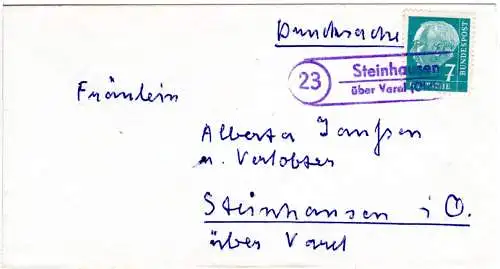 Drucksache
7
BUNDESPOST
23
Steinhausen
über Varel (O
Fräulein
Alberta Janßen
u. Verlobter
Steinhausen i O.
über Varel